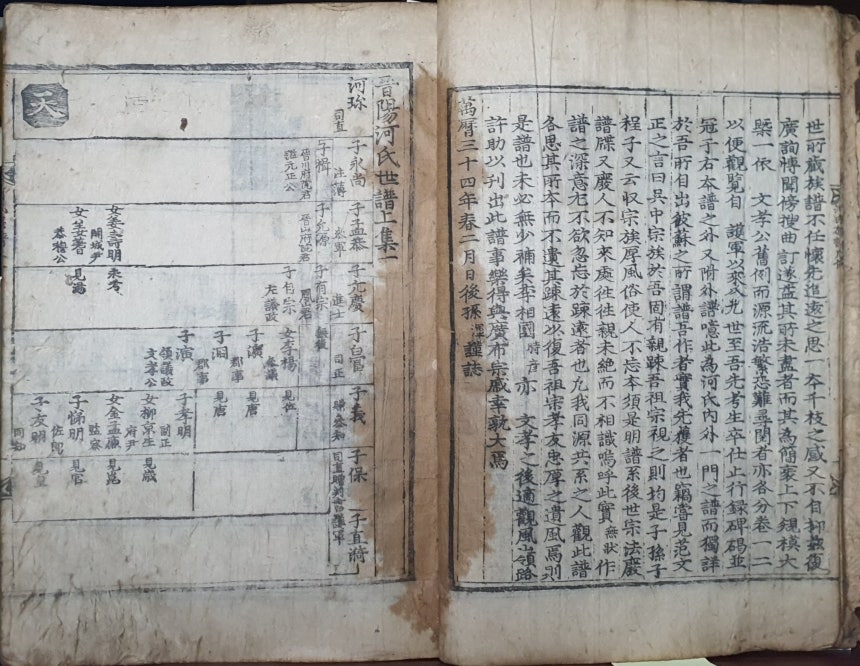 世所藏族譜不任懷先追遠之思一本千枝之感又不自抑玆復
廣詢博聞傍搜曲訂遂益其所未盡者而其爲簡袠上下規模大
槩一依 文孝公舊例而源流浩繁恐難昷閱者亦各分卷一二
以便觀覽自 護軍以來久先世至吾先考生卒仕止行錄碑碣並
冠于右本譜之外又附外譜噫此為河氏內外一門之譜而獨詳
於吾所自出彼蘇之所謂譜吾作者實我先獲者也竊嘗見范文
正之言曰吳中宗族於吾固有親踈吾祖宗視之則均是子孫子
程子又云収宗族厚風俗使人不忘本須是明譜系後世宗法廢
譜牒又廢人不知來處徃徃親未絶而不相識嗚呼此實 無狀作
譜之深意尤不欲忽忘於踈遠者也凢我同源共系之人觀此譜
各思其所本而不遺其踈遠以復吾祖宗孝友忠厚之遺風焉則
是譜也未必無少補矣李相國 時彦 亦 文孝之後適觀風嶺路
許助以刊出此譜事槩得與廣布宗戚幸孰大焉
萬曆三十四年春二月日後孫 渾 謹誌
晉陽河氏世譜上集一
河珎 司直
子永尚 注簿 子孟恭 參軍 子元慶 進士 子自寬 司正 子義 贈參知 子保 司直贈判書護軍 子直漪
子楫 晉川府院君 謚元正公 子允源 晉山府院君 子有宗 無後
子自宗 兵議政 女李楊 參議 見佐
子濱 郡事 見唐
子泂 郡事 見唐
子演 領議政 文孝公 子孝明 司正
女柳京生 府尹 見晟
女金孟廉 監察 見崑
子悌明 佐郎 見官
子友明 同知 見皇
女姜壽明 開城尹 永考
女姜蓍 恭穆公 見湯
天